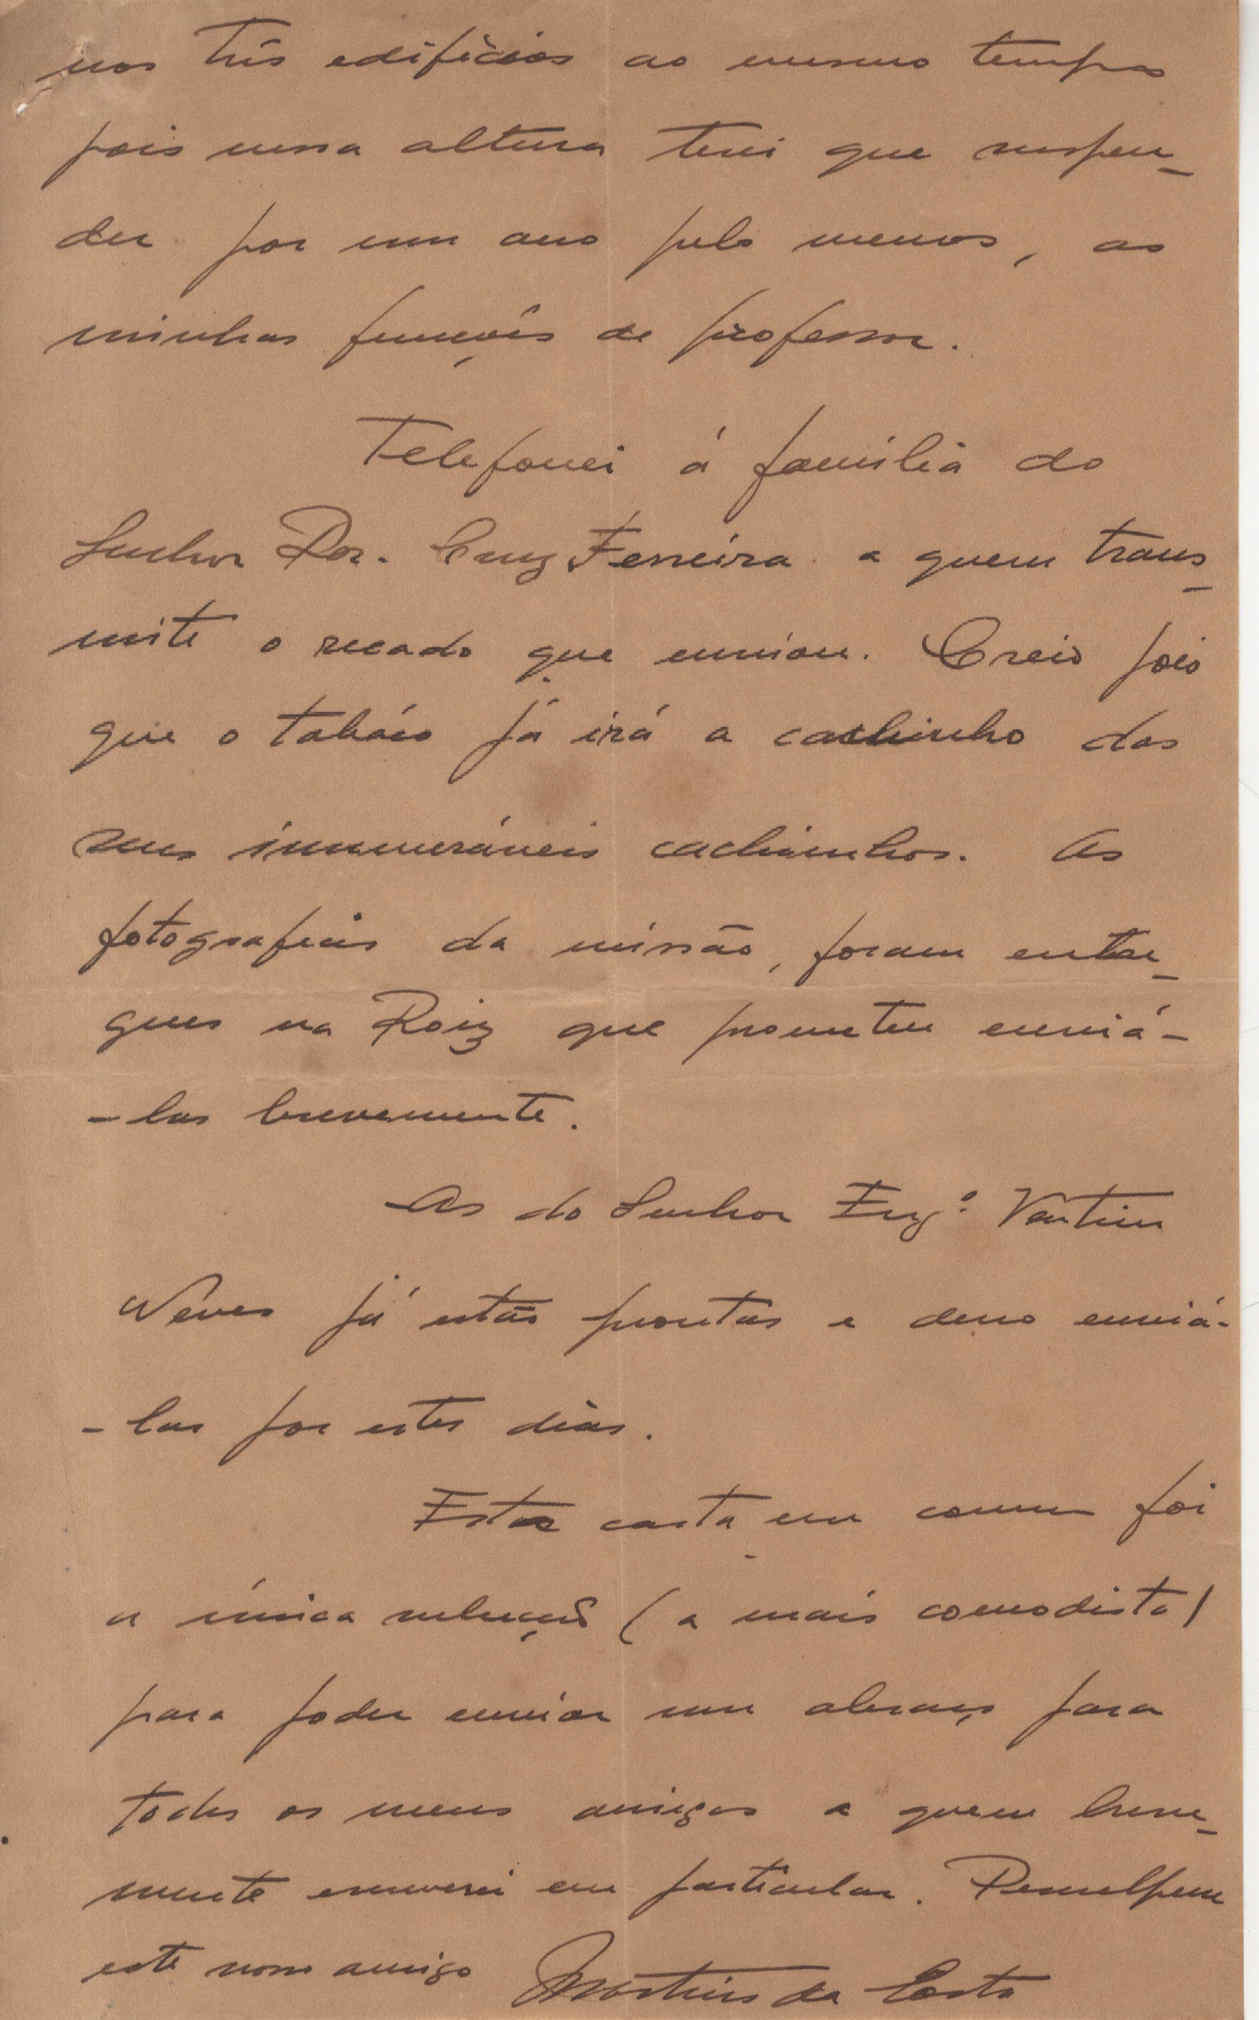 nos três edifícios ao mesmo tempo
pois nessa altura terei que suspen-
der por um ano pelo menos, as
minhas funções de professor.
Telefonei á família do
Senhor Dor. Cruz Ferreira a quem trans-
mite o recado que enviou. Creio pois
que o tabáco já irá a caminho dos
seus inumeráveis cachimbos. As
fotografias da missão, foram entre-
gues na Roiz que prometeu enviá-
-las brevemente.
As do Senhor Engº. Ventim
Neves já estão prontas e devo enviá-
-las por estes dias.
Esta carta em comum foi
a única solução (a mais comodista)
para poder enviar um abraço para
todos os meus amigos a quem breve-
mente escreverei em particular. Desculpem
este vosso amigo Martins da Costa